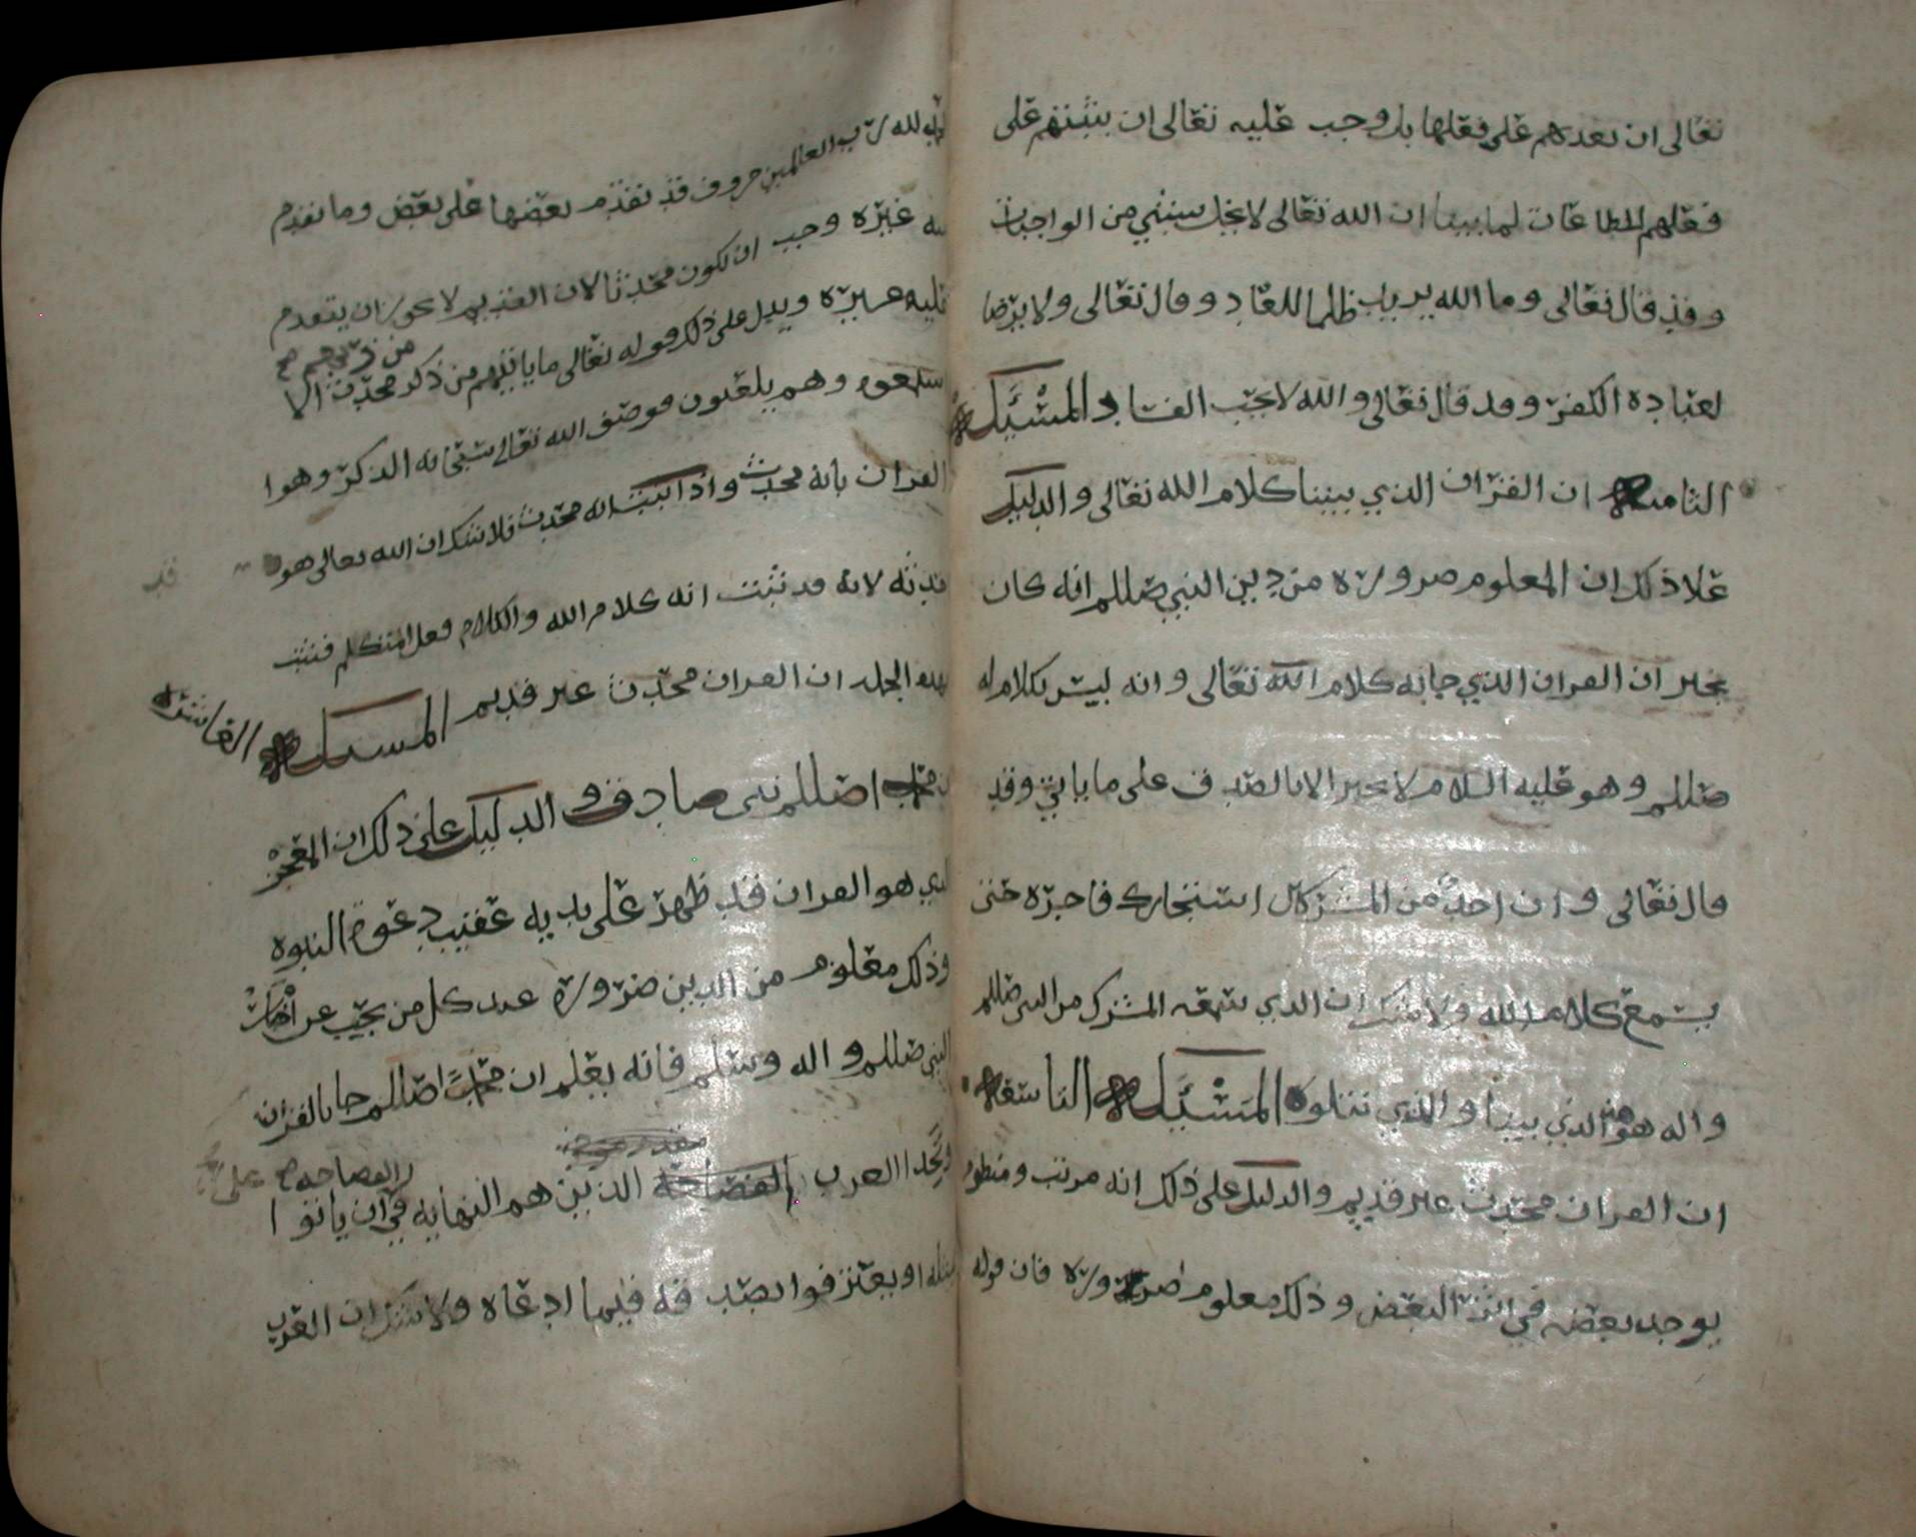 تعالى ان يعدهم على فعلها بل وجب عليه تعالى ان يثيبهم على
فعلهم للطاعات لما بينا ان الله تعالى لا يخل بشي من الواجبات
وقد قال تعالى وما الله يريد ظلما للعباد وقال تعالى ولا يرضا
لعباده الكفر وقد قال تعالى والله لا يحب الفساد المسئلة
الثامنة ان القران الذي بيننا كلام الله تعالى والدليل
علا ذلك ان المعلوم ضرورة من دين النبي صللم انه كان
يخبر ان القران الذي جا به كلام الله تعالى وانه ليس بكلام له
صللم وهو عليه السلام لا يخبر الا بالصدق على ما ياتي وقد
قال تعالى وان احد من المشركين استجارك فاجره حتى
يسمع كلام الله ولا شك ان الذي سمعه المشرك من النبي صللم
واله هو هذا الذي بيننا والذي نتلوه المسئلة التاسعة
ان القران محدث غير قديم والدليل على ذلك انه مرتب ومنظوم
يوجد بعضه في اثر البعض وذلك معلوم ضرورة فان قوله
الحمد لله رب العالمين حروف قد تقدم بعضها على بعض وما تقدم
عليه غيره وجب ان يكون محدثا لان القديم لا يجوز ان يتقدم
عليه غيره ويدل على ذلك قوله تعالى ما ياتيهم من ذكر من ربهم صح محدث الا
استمعوه وهم يلعبون فوصف الله تعالى سبحانه الذكر وهوا
القران بانه محدث واذا ثبت انه محدث فلا شك ان الله تعالى هو قد
احدثه لانه قد ثبت انه كلام الله والكلام فعل المتكلم فثبت
بهذه الجملة ان القران محدث غير قديم المسئلة العاشرة
ان محمدا صللم نبي صادق والدليل على ذلك ان المعجز
الذي هو القران قد ظهر على يديه عقيب دعوة النبوة
وذلك معلوم من الدين ضرورة عند كل من بحث عن اخبار
النبي صللم واله وسلم فانه يعلم ان محمدا صللم جا بالقران
وتحدا العرب الفصاحة الذين هم النهايه في الفصاحه صح على ان ياتوا
بمثله او يعترفوا بصدقه فيما ادعاه ولا شك ان العرب